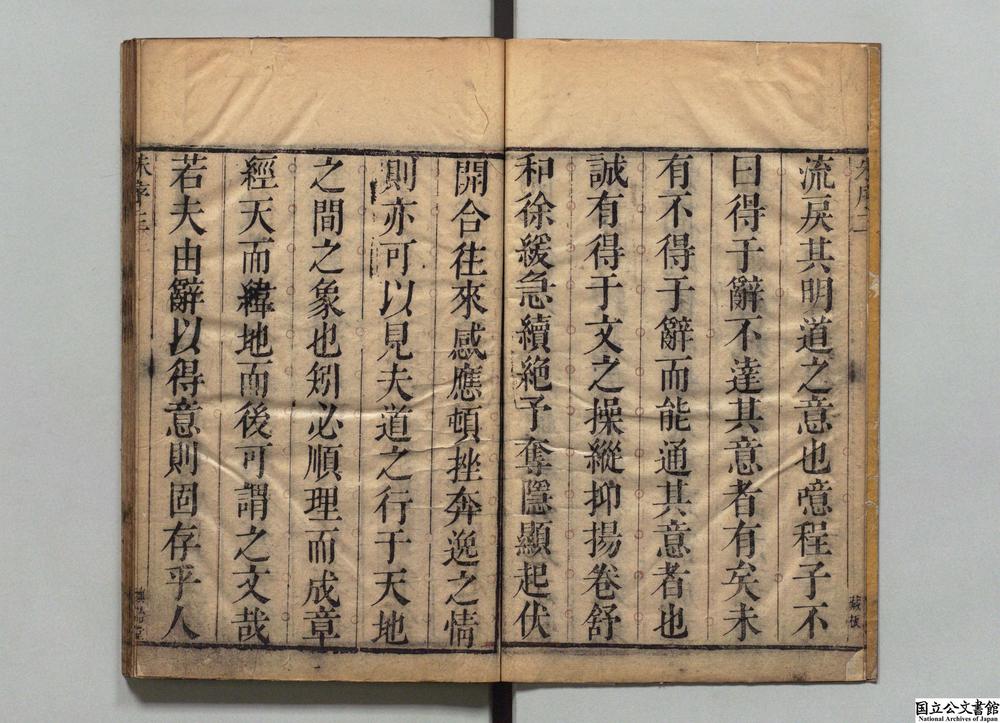 流戾其明道之意也噫程子不
曰得于辭不達其意者有矣未
有不得于辭而能通其意者也
誠有得于文之操縱抑揚卷舒
和徐緩急續絶予奪隱顯起伏
開合往來感應頓挫奔逸之情
則亦可以見夫道之行于天地
之間之象也矧必順理而成章
經天而緯地而後可謂之文哉
若夫由辭以得意則固存乎人
朱序
藏板
国立公文書館
National Archives of Japan